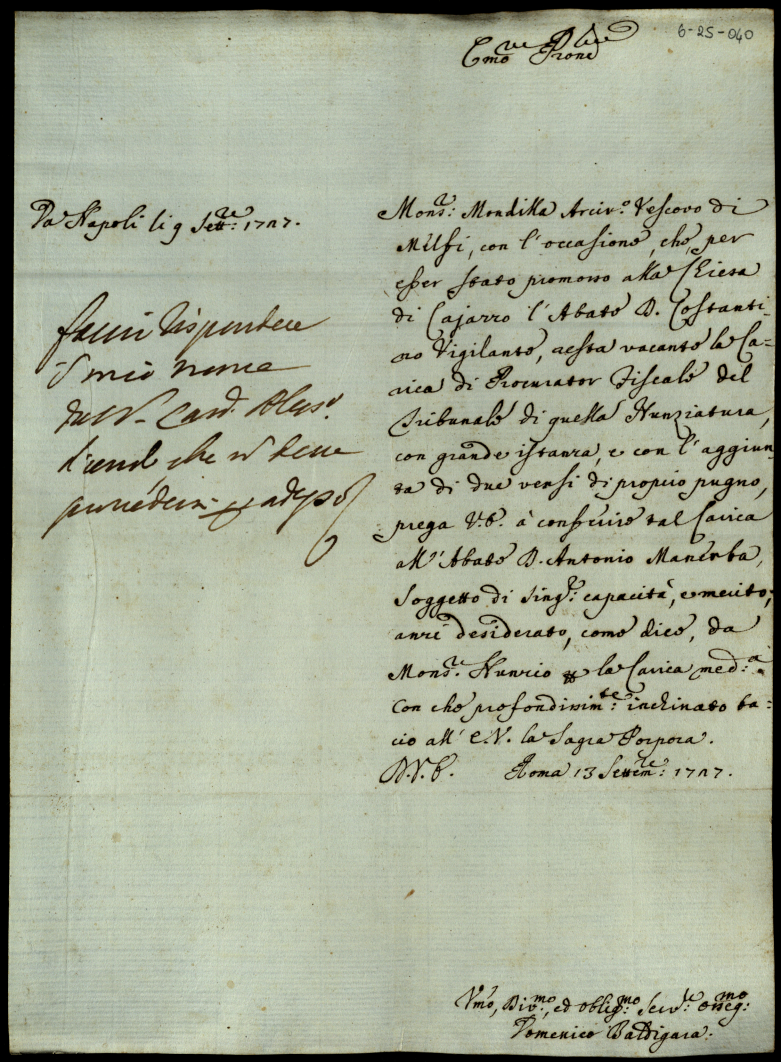 6-25-040
Em̃o e Prone
Da Napoli li 9 Sett.re: 1727.
facci rispondere
mio nome
Card.
che
Mons.r: Mondilla Arciv.o Vescovo di
Melfi, con l'occasione, che, per
esser stato promosso alla Chiesa
di Cajazzo l'Abate D. Costanti-
no Vigilante, resta vacante la Ca-
rica di Procurator Fiscale del
Tribunale di quella Nunziatura,
con grande istanza, e con l'aggiun-
ta di due versi di proprio pugno,
prega V.E. à conferire tal Carica
all'Abate D. Antonio Manerba,
Soggetto di sing.r: capacità, e merito,
anzi desiderato, come dice, da
Mons.r Nunzio la Carica med.a:
Con che profondissim.te: inchinato ba-
cio all'E.V. la Sagra Porpora.
D.V.E. Roma 13 Settem.re: 1727.
Vm̃o, Div.mo, ed oblig.mo Serv.re: osseq.mo:
Domenico Baldigara: